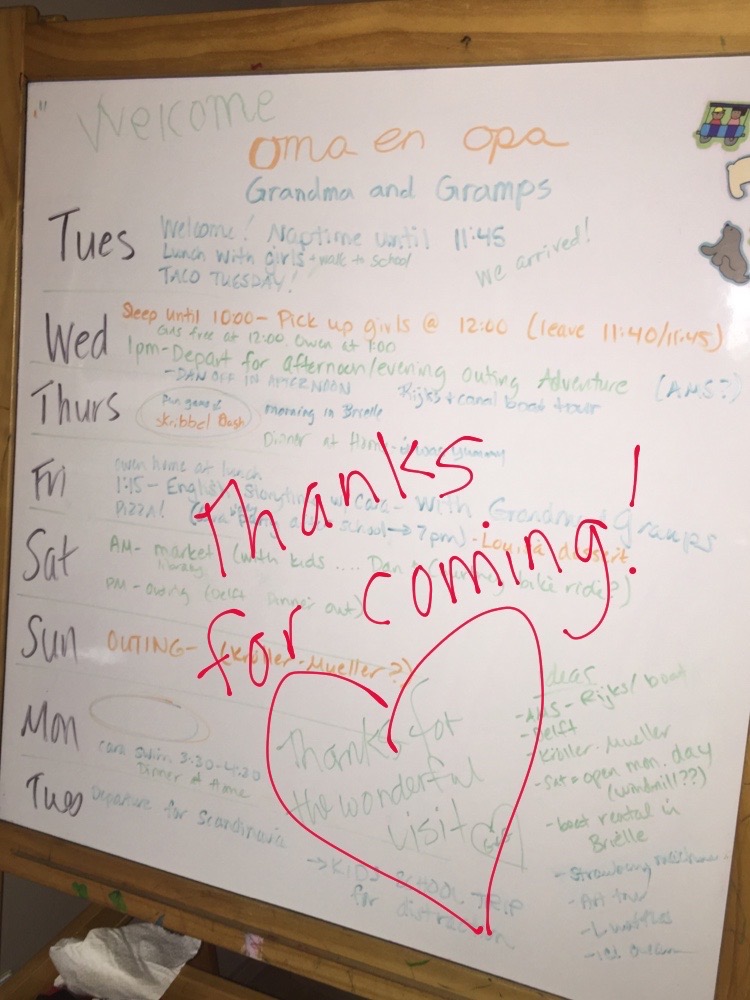 Welcome
oma en opa
Grandma and Gramps
Tues
Welcome! Naptime until 11:45
Lunch with girls + walk to school
TACO TUESDAY!
We arrived!
Wed
Sleep until 10:00 - Pick up girls @ 12:00 (leave 11:40/11:45)
Girls free at 12:00. Owen at 1:00
1pm - Depart for afternoon/evening outing Adventure (AMS?)
- DAN OFF IN AFTERNOON
Rijks + canal boat tour
Thurs
Skribbel Bash
morning in Brielle
Dinner at Home
yummy
Fri
Owen home at lunch
1:15 - English Storytime w/ Cara - with Grandma Gramps
PIZZA!
school → 7pm)
Sat
AM - market (with kids .... Dan
bike ride?)
library
PM - outing (Delft Dinner out)
Sun
OUTING - (Kröller-Mueller?)
Thanks
for coming!
Mon
Cara Swim 3:30-4:30
Dinner at Home
Tues
Departure for Scandinavia
Thanks for
the wonderful
visit
→ KIDS SCHOOL TRIP
for distraction
Ideas
- AMS - Rijks/boat
- Delft
- Kröller-Mueller
- Sat = open mon. day
(windmill??)
- boat rental in
Brielle
- Strawberry
- Art